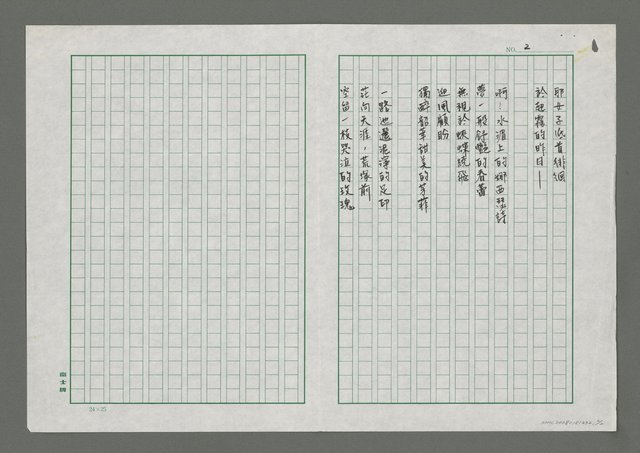 NO. 2
那女子低首徘徊
於起霧的昨日—
啊！水湄上的娜西瑟詩
夢一般舒艷的春蕾
無視於蛺蝶繞飛
迎風顧盼
獨醉韶華甜美的芳菲
一路迤邐泥濘的足印
茫向天涯，荒塚前
空留一枝哭泣的玫瑰。
南士牌
24×25